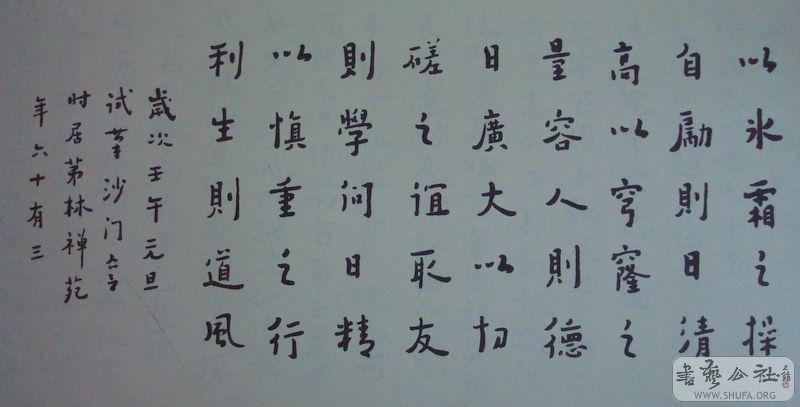 以氷霜之操
自勵則日清
高以穹窿之
量容人則德
日廣大以切
磋之誼取友
則學问日精
以慎重之行
利生則道風
歲次壬午元旦
试筆沙门
时居林禅苑
年六十有三
書藝公社
WWW.SHUFA.ORG